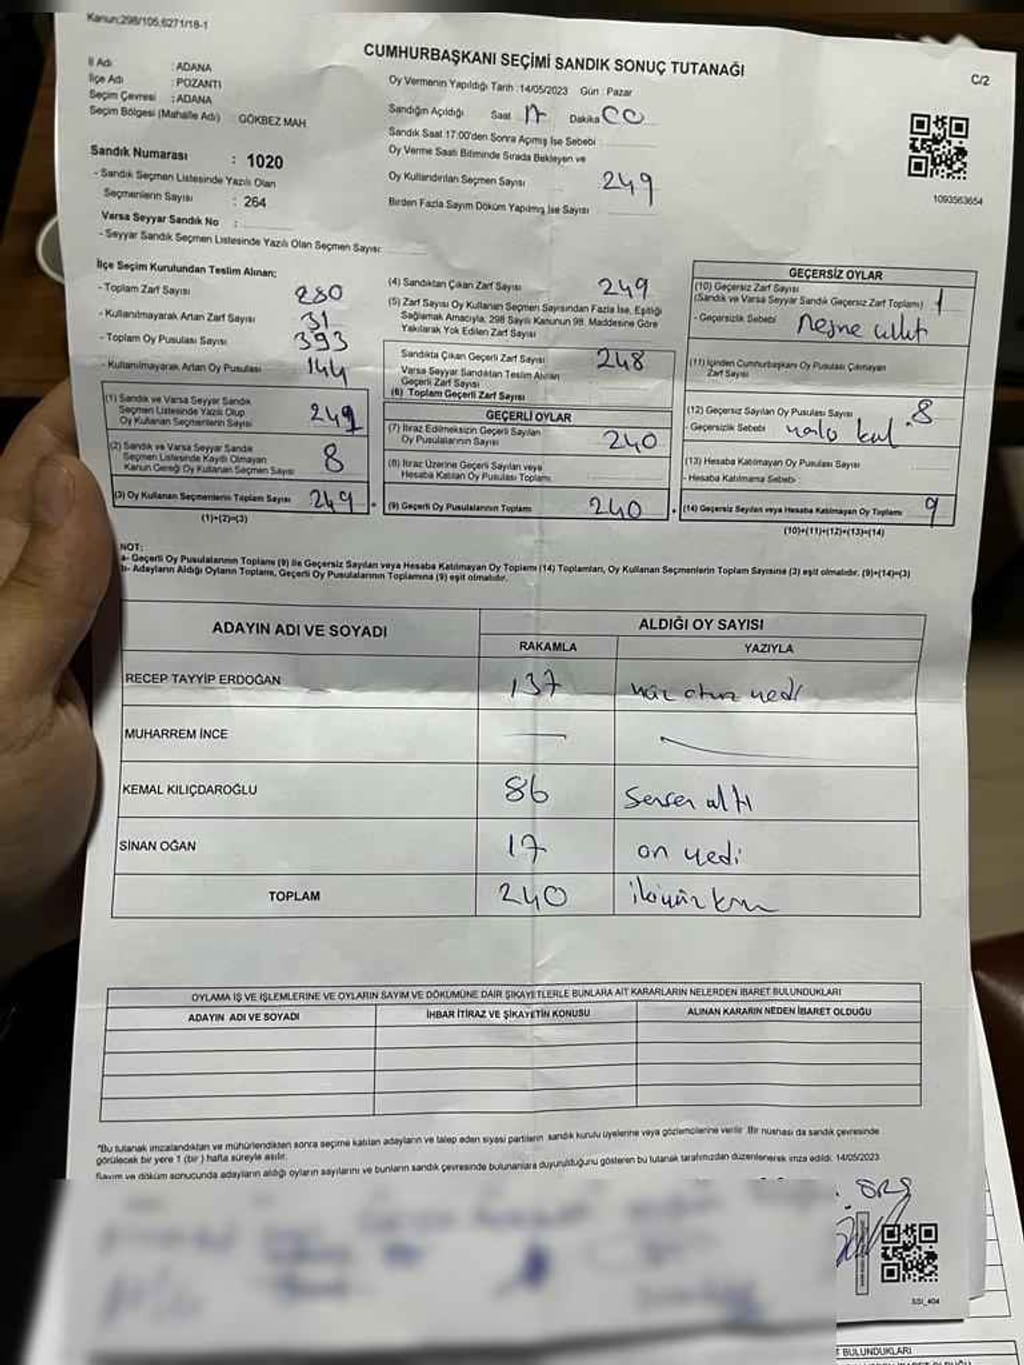 Kanun:298/105,6271/18-1
CUMHURBAŞKANI SEÇİMİ SANDIK SONUÇ TUTANAĞI
C/2
İl Adı : ADANA
İlçe Adı : POZANTI
Seçim Çevresi : ADANA
Seçim Bölgesi (Mahalle Adı) : GÖKBEZ MAH.
Sandık Numarası : 1020
- Sandık Seçmen Listesinde Yazılı Olan
Seçmenlerin Sayısı : 264
Varsa Seyyar Sandık No :
- Seyyar Sandık Seçmen Listesinde Yazılı Olan Seçmen Sayısı:
Oy Vermenin Yapıldığı Tarih :14/05/2023 Gün : Pazar
Sandığın Açıldığı Saat 17 Dakika 00
Sandık Saat 17:00'den Sonra Açımış İse Sebebi
Oy Verme Saati Bitiminde Sırada Bekleyen ve
Oy Kullandırılan Seçmen Sayısı 249
Birden Fazla Sayım Döküm Yapılmış İse Sayısı
1093563654
İlçe Seçim Kurulundan Teslim Alınan;
- Toplam Zarf Sayısı 280
- Kullanılmayarak Artan Zarf Sayısı 31
- Toplam Oy Pusulası Sayısı 393
- Kullanılmayarak Artan Oy Pusulası 144
(1) Sandık ve Varsa Seyyar Sandık
Seçmen Listesinde Yazılı Olup
Oy Kullanan Seçmenlerin Sayısı 249
(2) Sandık ve Varsa Seyyar Sandık
Seçmen Listesinde Kayıtlı Olmayan
Kanun Gereği Oy Kullanan Seçmen Sayısı 8
(3) Oy Kullanan Seçmenlerin Toplam Sayısı 249
(1)+(2)=(3)
(4) Sandıktan Çıkan Zarf Sayısı 249
(5) Zarf Sayısı Oy Kullanan Seçmen Sayısından Fazla İse, Eşitliği
Sağlamak Amacıyla, 298 Sayılı Kanunun 98. Maddesine Göre
Yakılarak Yok Edilen Zarf Sayısı
Sandıkta Çıkan Geçerli Zarf Sayısı 248
Varsa Seyyar Sandıktan Teslim Alınan
Geçerli Zarf Sayısı
(6) Toplam Geçerli Zarf Sayısı
GEÇERLİ OYLAR
(7) İtiraz Edilmeksizin Geçerli Sayılan
Oy Pusulalarının Sayısı 240
(8) İtiraz Üzerine Geçerli Sayılan veya
Hesaba Katılan Oy Pusulası Toplamı
(9) Geçerli Oy Pusulalarının Toplamı 240
GEÇERSİZ OYLAR
(10) Geçersiz Zarf Sayısı
(Sandık ve Varsa Seyyar Sandık Geçersiz Zarf Toplamı) 1
- Geçersizlik Sebebi
(11) İçinden Cumhurbaşkanı Oy Pusulası Çıkmayan
Zarf Sayısı
(12) Geçersiz Sayılan Oy Pusulası Sayısı 8
- Geçersizlik Sebebi
(13) Hesaba Katılmayan Oy Pusulası Sayısı
- Hesaba Katılmama Sebebi :
(14) Geçersiz Sayılan veya Hesaba Katılmayan Oy Toplamı 9
(10)+(11)+(12)+(13)=(14)
NOT:
a- Geçerli Oy Pusulalarının Toplamı (9) ile Geçersiz Sayılan veya Hesaba Katılmayan Oy Toplamı (14) Toplamları, Oy Kullanan Seçmenlerin Toplam Sayısına (3) eşit olmalıdır. (9)+(14)=(3)
b- Adayların Aldığı Oyların Toplamı, Geçerli Oy Pusulalarının Toplamına (9) eşit olmalıdır.
ADAYIN ADI VE SOYADI
ALDIĞI OY SAYISI
RAKAMLA YAZIYLA
RECEP TAYYİP ERDOĞAN 137 yüz otuz yedi
MUHARREM İNCE
KEMAL KILIÇDAROĞLU 86 seksen altı
SİNAN OĞAN 17 on yedi
TOPLAM 240 ikiyüz kırk
OYLAMA İŞ VE İŞLEMLERİNE VE OYLARIN SAYIM VE DÖKÜMÜNE DAİR ŞİKAYETLERLE BUNLARA AİT KARARLARIN NELERDEN İBARET BULUNDUKLARI
ADAYIN ADI VE SOYADI İHBAR İTİRAZ VE ŞİKAYETİN KONUSU ALINAN KARARIN NEDEN İBARET OLDUĞU
*Bu tutanak imzalandıktan ve mühürlendikten sonra seçime katılan adayların ve talep eden siyasi partilerin sandık kurulu üyelerine veya gözlemcilerine verilir. Bir nüshası da sandık çevresinde
görülecek bir yere 1 (bir ) hafta süreyle asılır.
Sayım ve döküm sonucunda adayların aldığı oyların sayılarını ve bunların sandık çevresinde bulunanlara duyurulduğunu gösteren bu tutanak tarafımızdan düzenlenerek imza edildi. 14/05/2023
SSI_404
T BULUNDUKLARI